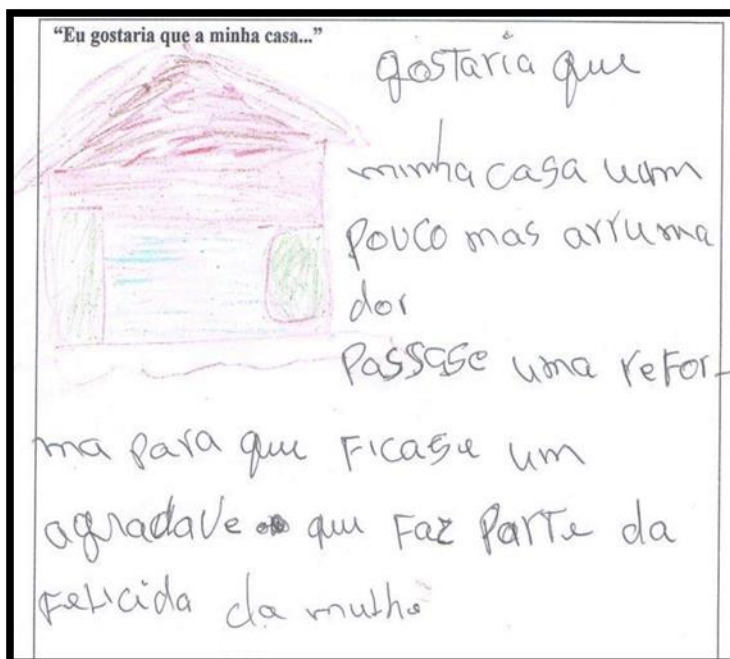 "Eu gostaria que a minha casa..."
gostaria que
minha casa uam
pouco mas arruma
dor
Passase uma refor-
ma para que Ficase um
agradave que Faz Parte da
Felicida da mulhe